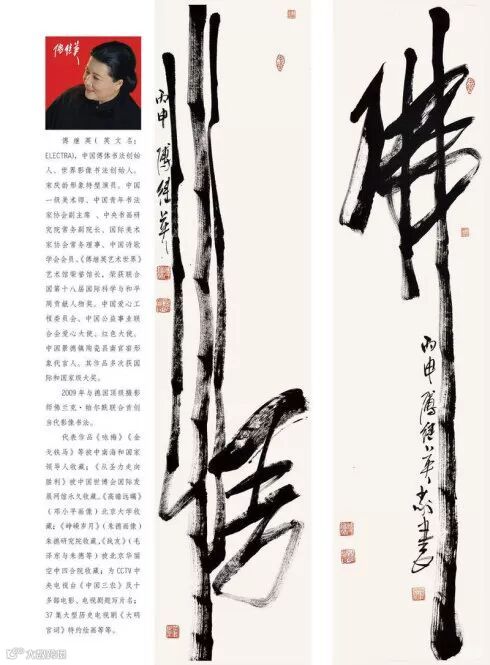 傅继英
傅继英(英文名:
ELECTRA),中国傅体书法创始
人、世界影像书法创始人。
宋庆龄形象特型演员。中国
一级美术师、中国青年书法
家协会副主席、中央书画研
究院常务副院长、国际美术
家协会常务理事、中国诗歌
学会会员、《傅继英艺术世界》
艺术馆荣誉馆长，荣获联合
国第十八届国际科学与和平
周贡献人物奖。中国爱心工
程委员会、中国公益事业联
合会爱心大使、红色大使。
中国景德镇陶瓷县南官窑形
象代言人。其作品多次获国
际和国家级大奖。
2009年与德国顶级摄影
师佛兰克·柏尔默联合首创
当代影像书法。
代表作品《咏梅》《金
戈铁马》等被中南海和国家
领导人收藏；《从圣力走向
胜利》被中国世博会国际发
展网馆永久收藏。《高瞻远瞩》
(邓小平画像)北京大学收
藏；《峥嵘岁月》(朱德画像)
朱德研究院收藏。《战友》(毛
泽东与朱德等)被北京华丽
空中四合院收藏；为CCTV中
央电视台《中国三农》及十
多部电影、电视剧题写片名；
37集大型历史电视剧《大明
宫词》特约绘画等等。
丙申 傅继英
佛
丙申 傅继英
大数跨境